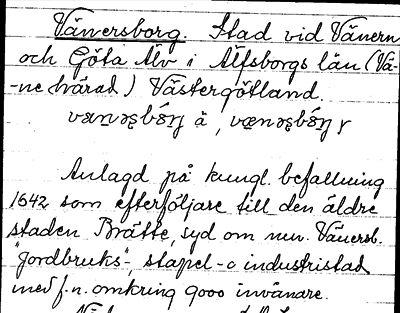 Vänersborg. Stad vid Vänern
och Göta Älv i Älfsborgs län (Vä-
-ne härad) Västergötland.
Anlagd på kungl. befallning
1642 som efterföljare till den äldre
staden Brätte, syd om nuv. Vänersb.
"Jordbruks-, stapel- o industristad
med f.n. omkring 9000 invånare.